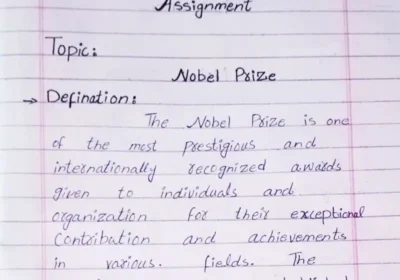 Assignment
Topic:
Nobel Prize
→ Defination:
The Nobel Prize is one
of the most prestigious and
internationally recognized awards
given to individuals and
organization for their exceptional
Contribation and achievements
in various. fields. The